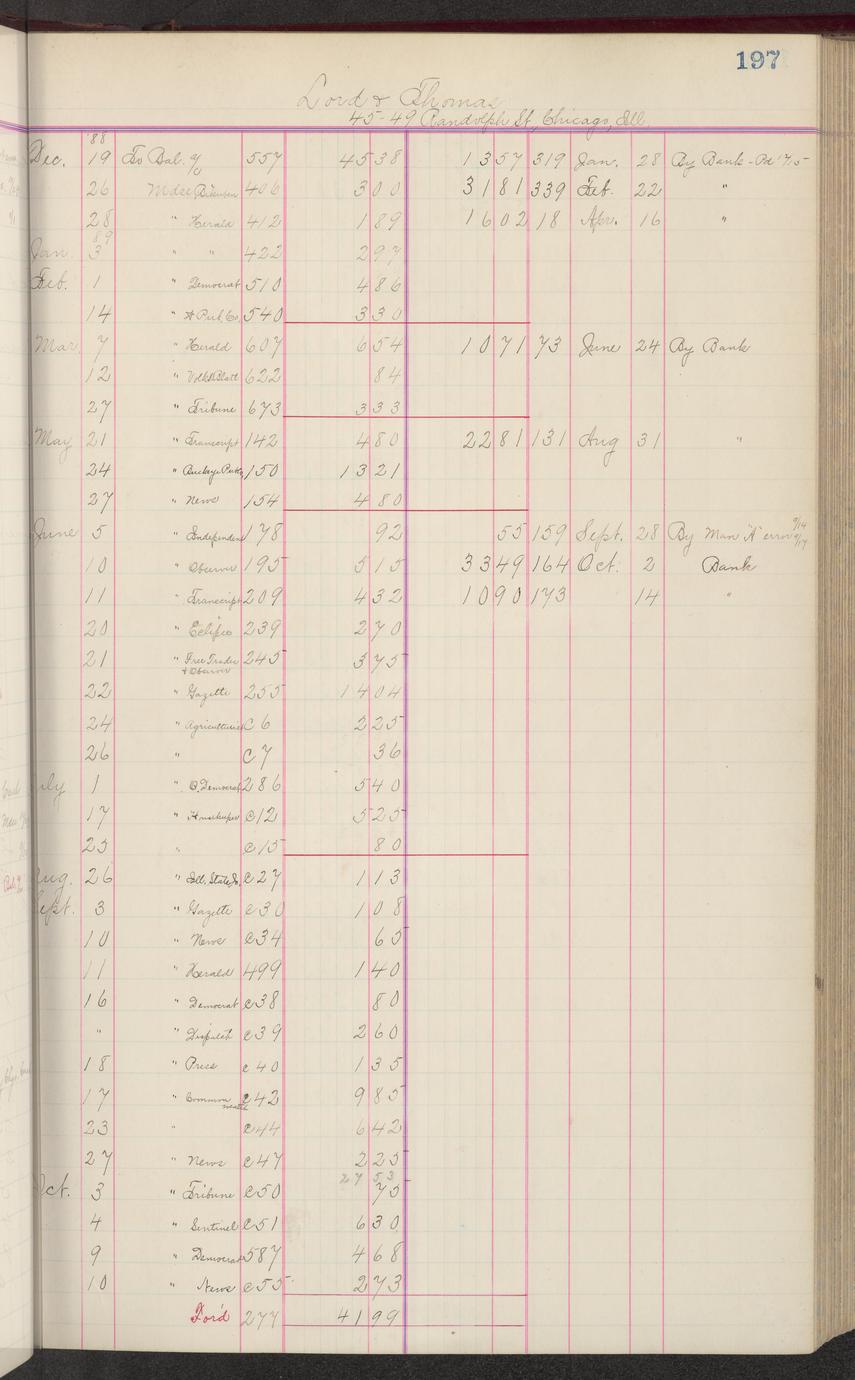 197
Lord & Thomas
45-49 Randolph St, Chicago, Ill.
'88
Dec. 19 To Bal. % 557 45 38 13 57 319 Jan. 28 By Bank
26 Mdse 406 3 00 31 81 339 Feb. 22 "
28 " Herald 412 1 89 16 02 18 Apr. 16 "
89
Jan. 3 " " 422 2 97
Feb. 1 " Democrat 510 4 86
14 " A Pub. Co. 540 3 30
Mar. 7 " Herald 607 6 54 10 71 73 June 24 By Bank
12 " Volksblatt 622 84
27 " Tribune 673 3 33
May 21 " Transcript 142 4 80 22 81 131 Aug 31 "
24 " Buckeye 150 13 21
27 " News 154 4 80
June 5 " Independent 178 92 55 159 Sept. 28 By Man "A" error 9/14 9/17
10 " Observer 195 5 15 33 49 164 Oct. 2 Bank
11 " Transcript 209 4 32 10 90 173 14 "
20 " Eclipse 239 2 70
21 " Free Trader 245 3 75
+ Observer
22 " Gazette 255 14 04
24 " Agriculturist C 6 2 25
26 " C 7 36
July 1 " O. Democrat 286 5 40
17 " Housekeeper C 12 5 25
25 " C 15 80
Aug. 26 " Ill. State C 27 1 13
Sept. 3 " Gazette C 30 1 08
10 " News C 34 65
11 " Herald 499 1 40
16 " Democrat C 38 80
" " Dispatch C 39 2 60
18 " Press C 40 1 35
17 " Common C 42 9 85
wealth
23 " C 44 6 42
27 " News C 47 2 25
27 53
Oct. 3 " Tribune C 50 75
4 " Sentinel C 51 6 30
9 " Democrat 587 4 68
10 " News C 55 2 73
For'd 277 41 99